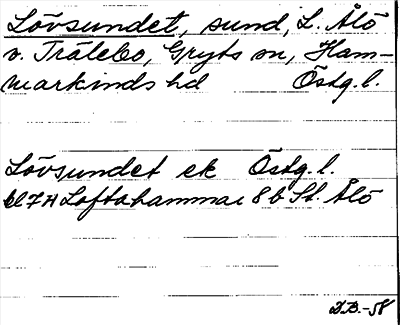 Lövsundet, sund, L. Ålö
v. Trälebo, Gryts sn, Ham-
markinds hd Östg. l.
Lövsundet ek Östg. l.
bl 7H Loftahammar 8b St. Ålö
D.B.-58